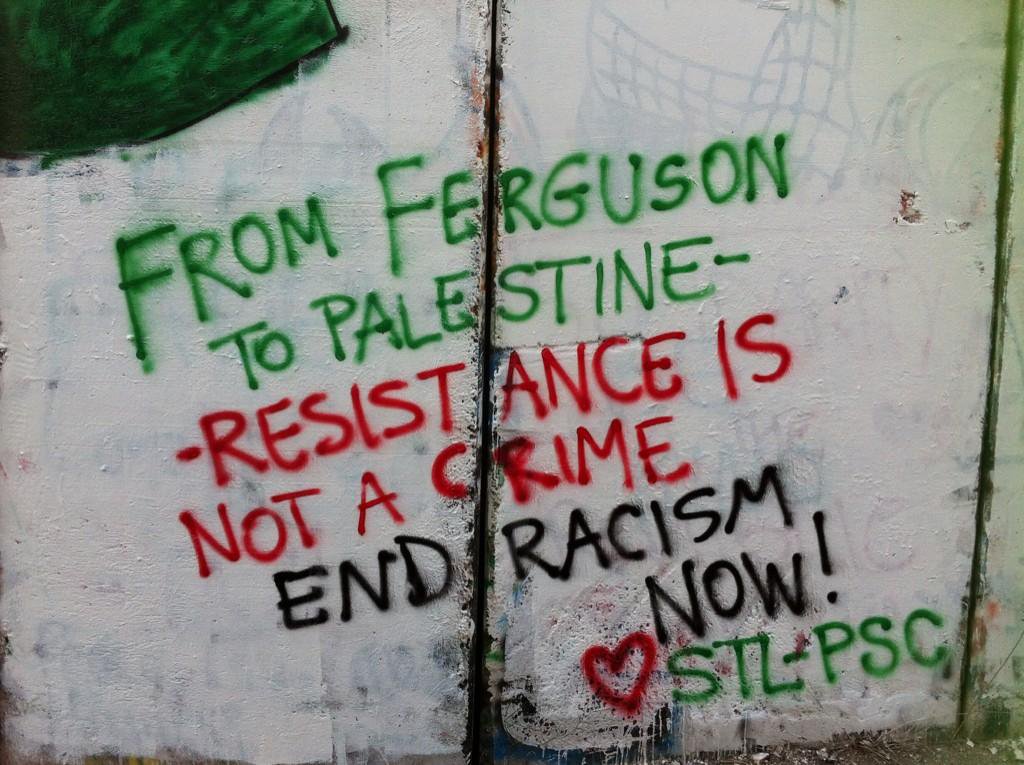 FROM FERGUSON
TO PALESTINE-
-RESISTANCE IS
NOT A CRIME
END RACISM
NOW!
STL-PSC